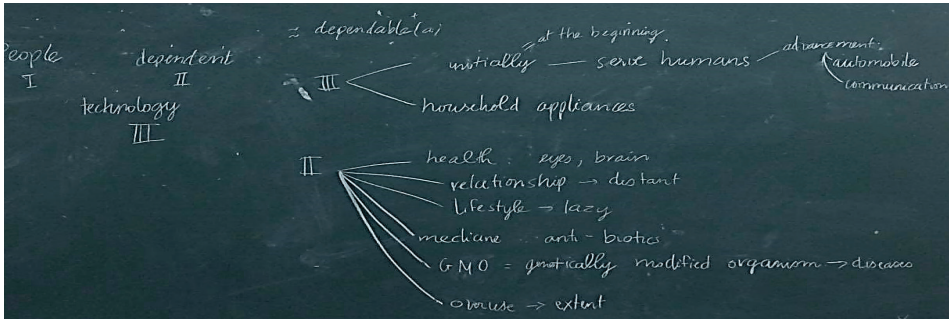 ≈ dependable (a)
People
I
dependent
II
technology
III
III
initially = at the beginning — serve humans — advancement:
automobile
communication
household appliances
II
health : eyes, brain
relationship → distant
Lifestyle → lazy
medicine : anti-biotics
GMO = genetically modified organism → diseases
overuse → extent